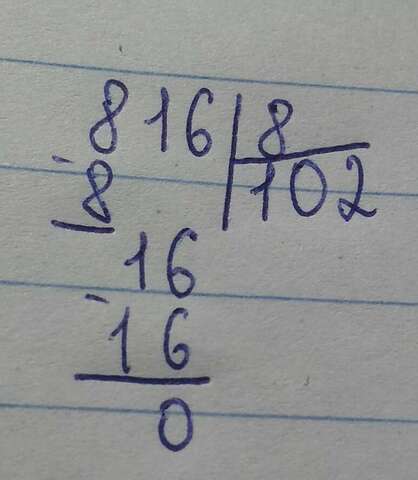 816 8
8 102
16
16
0